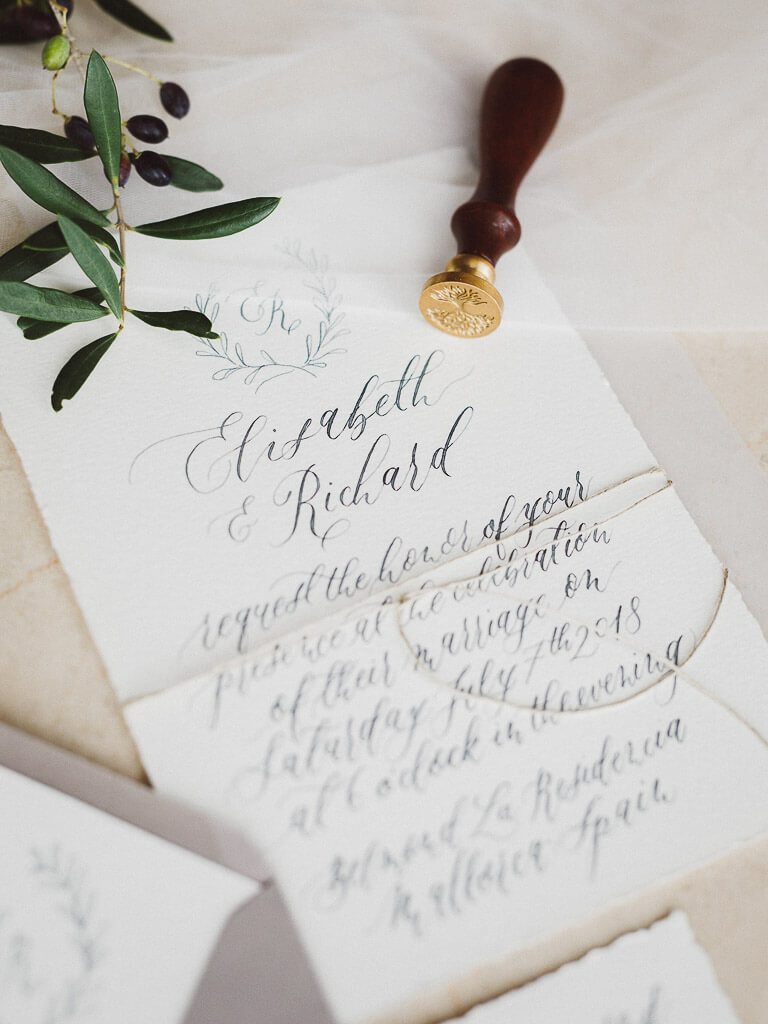 ER
Elisabeth
& Richard
request the honor of your
presence at the celebration
of their marriage on
Saturday July 7th 2018
at 6 o'clock in the evening
Belmond La Residencia
Mallorca Spain
R